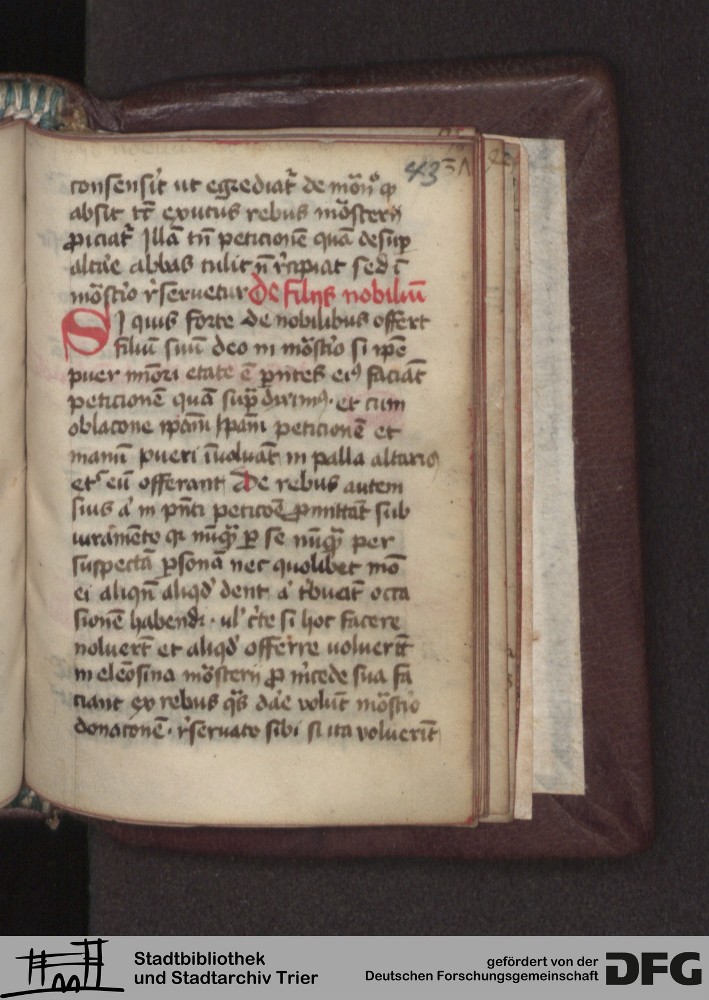 43 31
consensit ut egrediat̄ de mōn° qͥ
absit tc̄ exutus rebus mōsterii
ꝓiciat̄ Illā tn̄ peticionē quā desup̄
altāe abbas tulit n̄ rͥcipiat sed ī
mōstͥo rͥseruetur De filiis nobiliū
SI quis forte de nobilibus offert
filiū suū deo in mōstͥo si ip̄e
puer mīori etate ē pn̄tes eiꝰ faciāt
peticionē quā sup̄ diximꝰ · et cum
oblacōne ip̄am peticionē et
manū pueri īuoluāt in palla altaris
et sͥ eū offerant De rebus autem
suis aͥ in pn̄ti peticōe ꝓmittāt sub
iuramēto qꝛ nūq̄ꝫ ꝑ se nūq̄ꝫ per
suspectā ꝑsonā nec quolibet mō
ei aliqn̄ aliqd' dent aͥ tͥbuāt occa
sionē habendi · ul' cͥte si hoc facere
noluerīt et aliqd' offerre voluerīt
in eleōsina mōsterii ꝓ mͥcede sua fa
ciant ex rebus qͣs dāe volūt mōstͥo
donacōnē · rͥseruato sibi si ita voluerīt
Stadtbibliothek
und Stadtarchiv Trier
gefördert von der
Deutschen Forschungsgemeinschaft
DFG